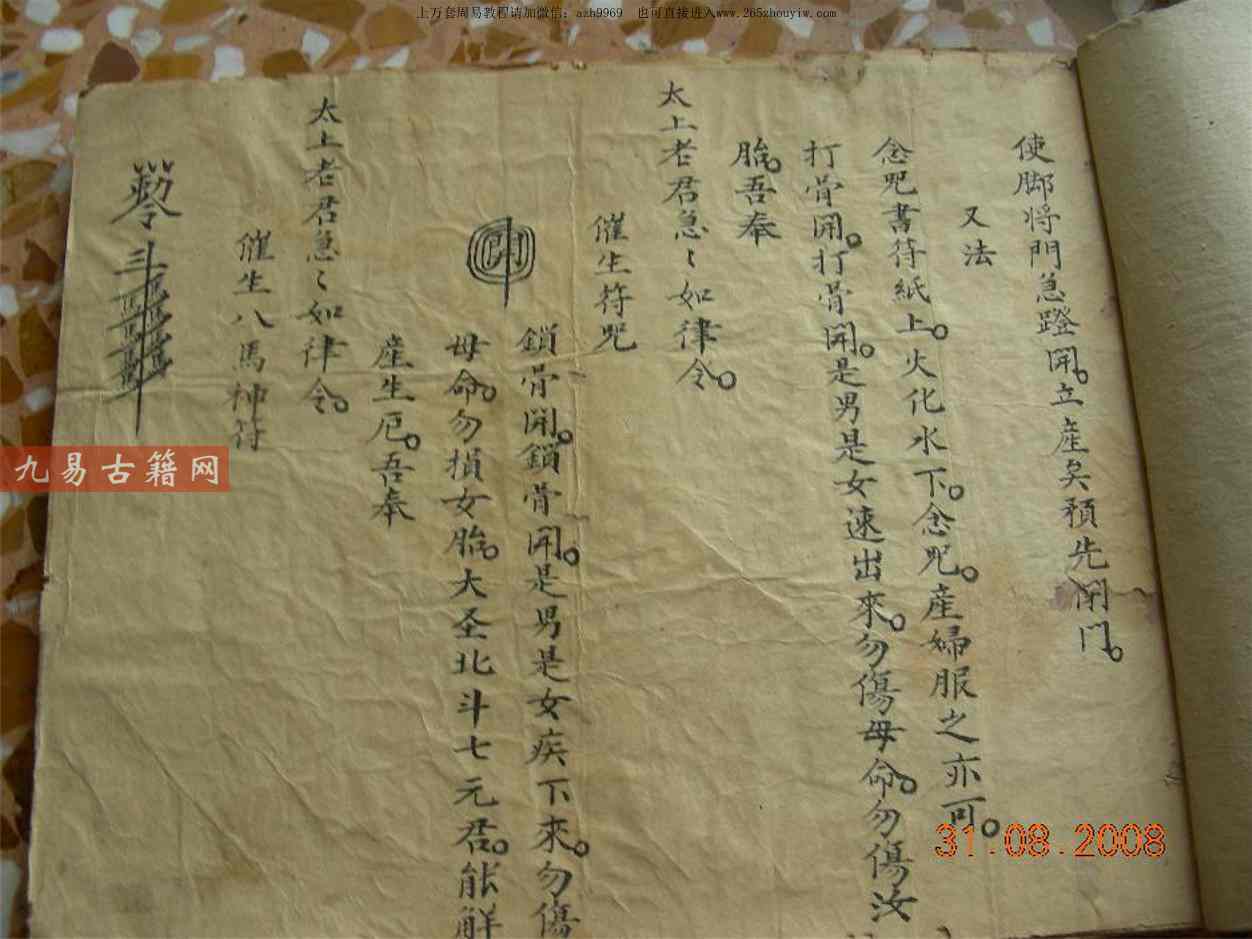 上万套周易教程请加微信：azh9969 也可直接进入www.265zhouyiw.com
使脚将門急蹬開。立產矣預先開門。
又法
念咒書符紙上。火化水下。念咒。產婦服之亦可。
打骨開。打骨開。是男是女速出來。勿傷母命。勿傷汝
胎。吾奉
太上老君急〻如律令。
催生符咒
鎖骨開。鎖骨開。是男是女疾下來。勿傷
母命。勿損女胎。大圣北斗七元君。能解
產生厄。吾奉
太上老君急〻如律令。
催生八馬神符
九易古籍网
31.08.2008